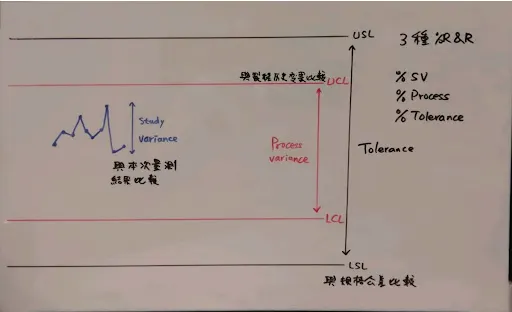 USL
3種%R&R
與製程歷史變異比較 UCL
% SV
% Process
% Tolerance
Study
variance
Process
variance
Tolerance
與本次量測
結果比較
LCL
LSL
與規格公差比較